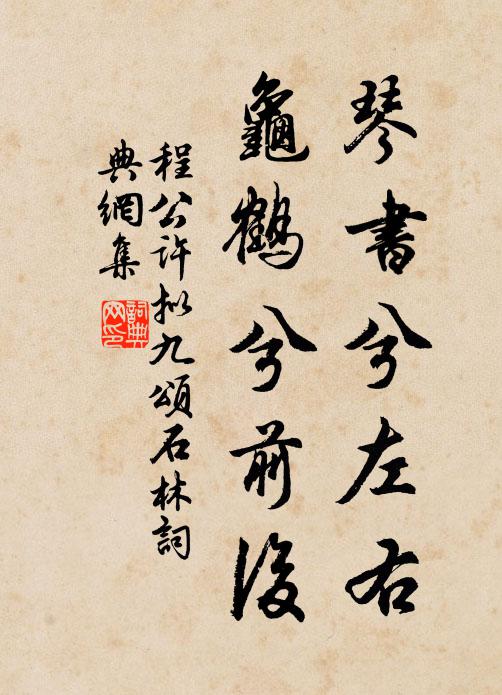 琴書兮左右
龜鶴兮前後
程公許拟九頌石林詞
典網集
詞典
网印